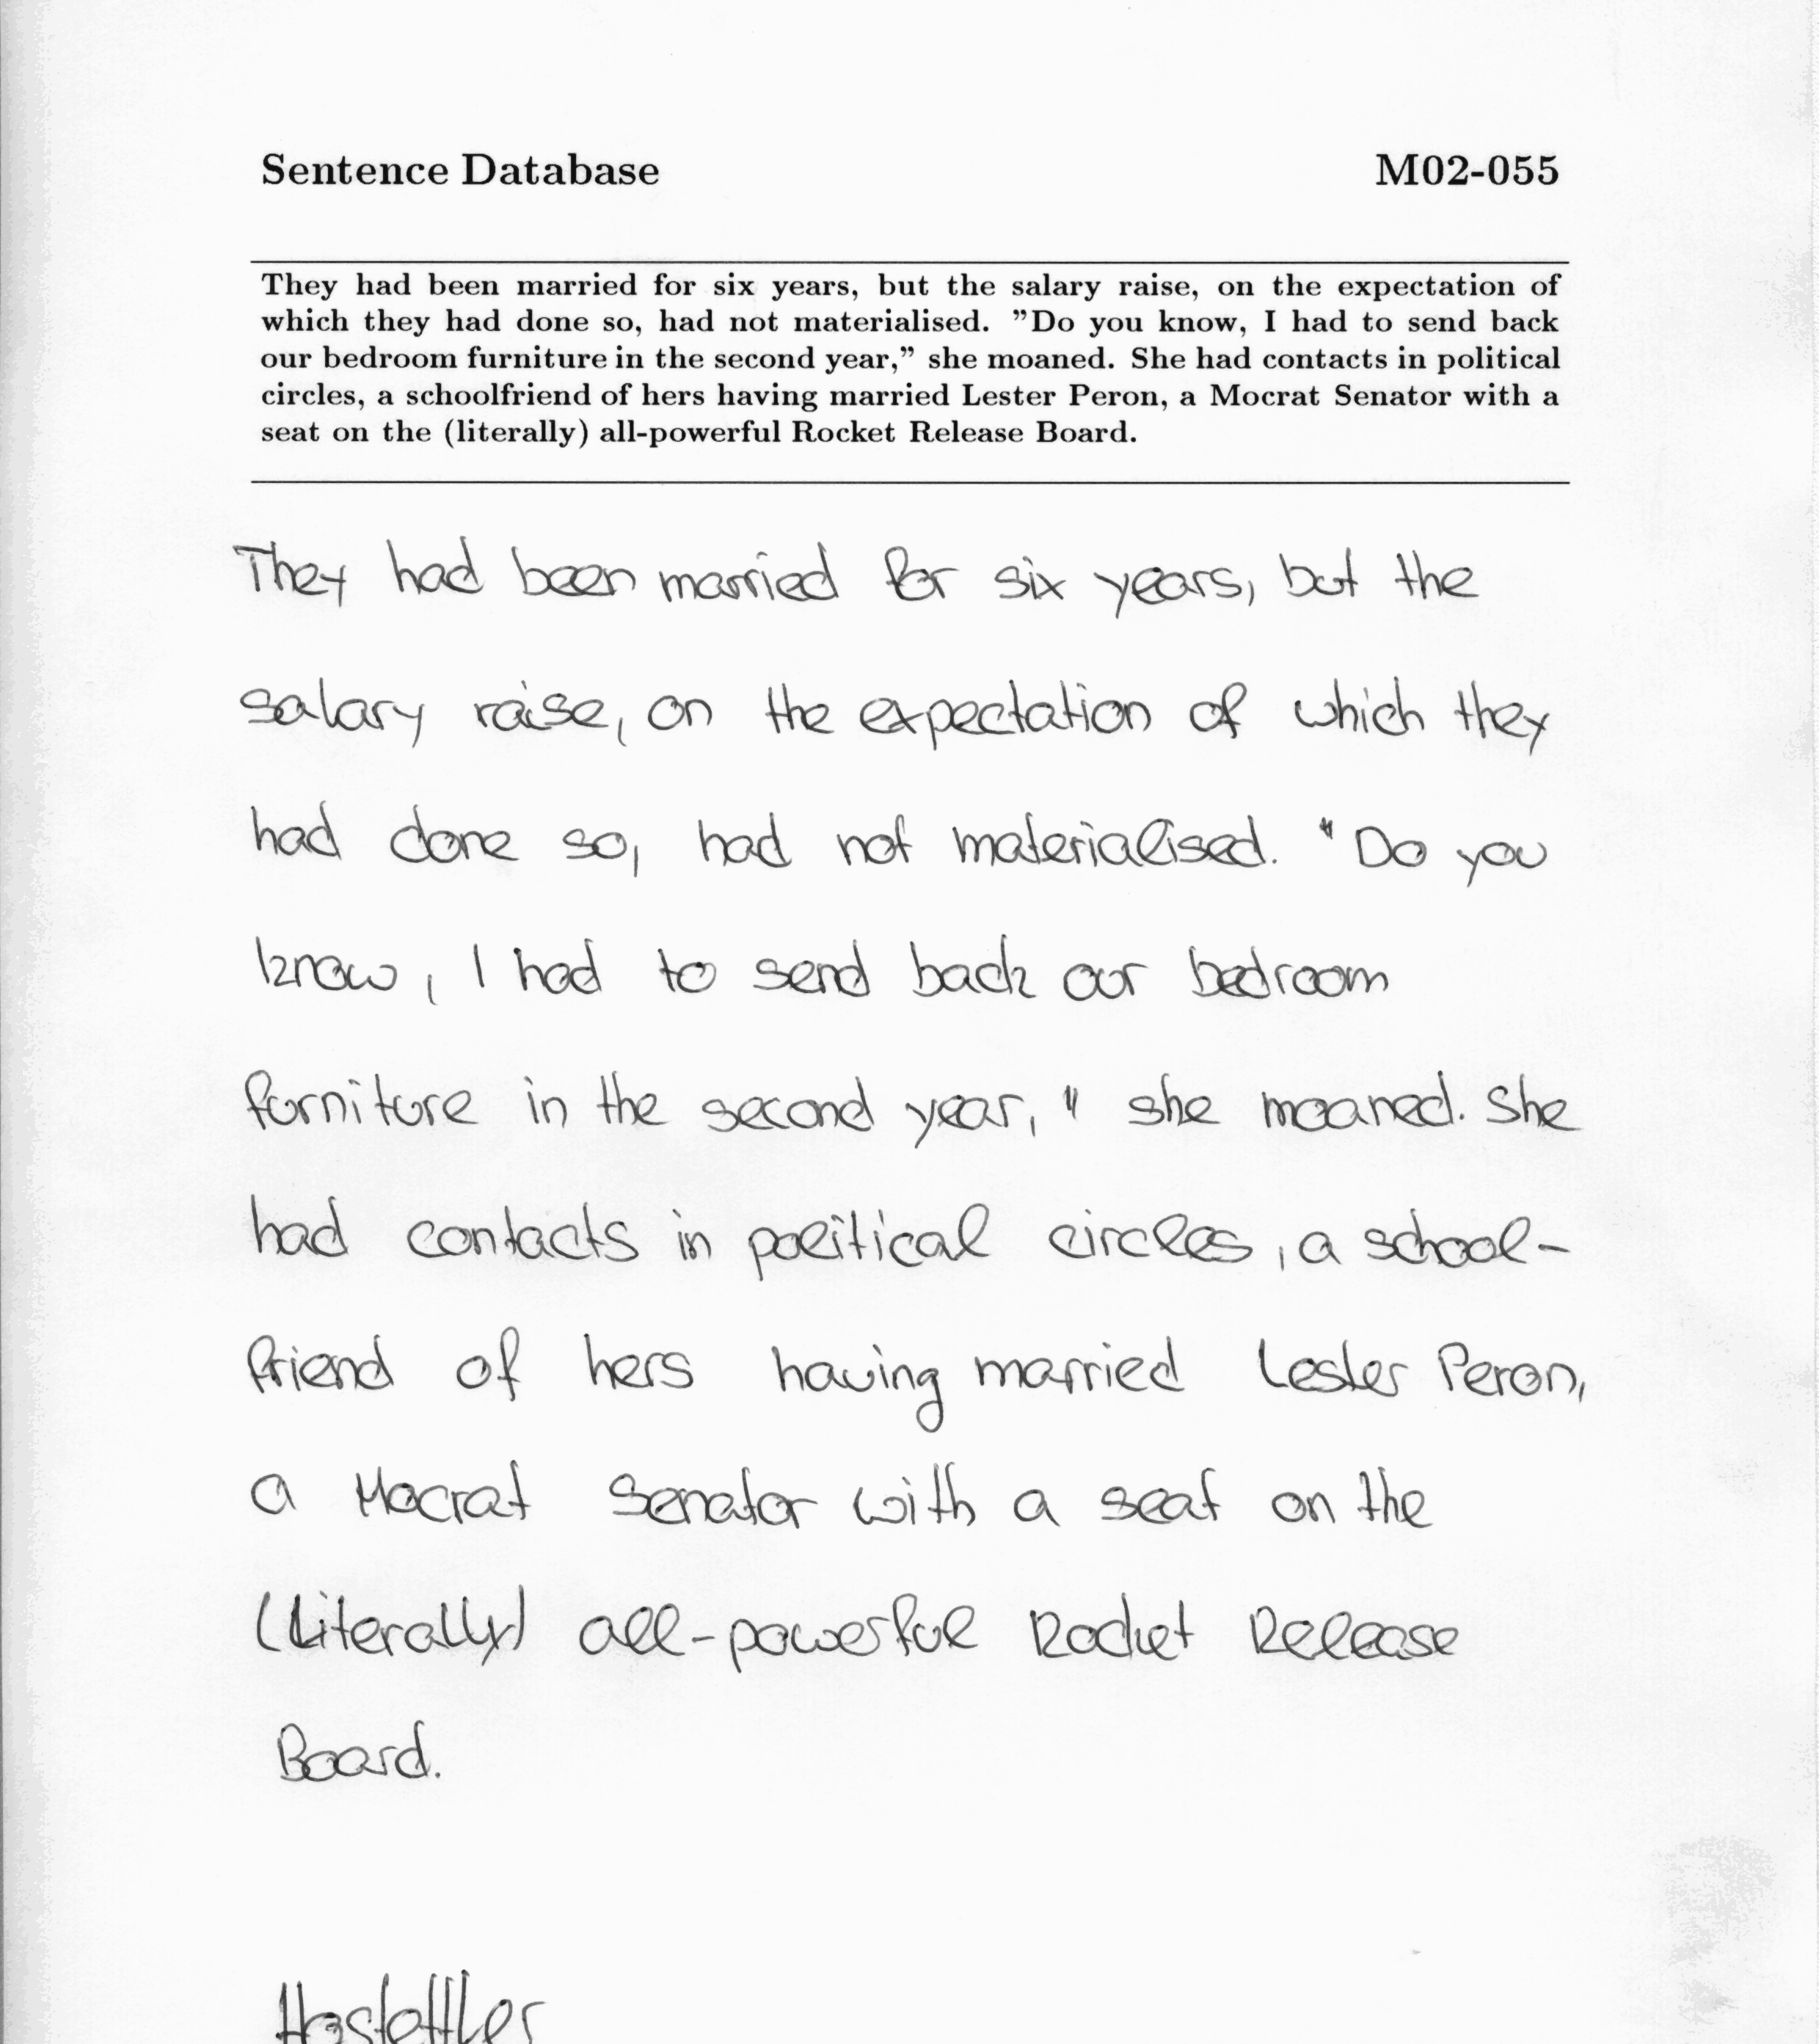 Sentence Database M02-055
They had been married for six years, but the salary raise, on the expectation of
which they had done so, had not materialised. "Do you know, I had to send back
our bedroom furniture in the second year," she moaned. She had contacts in political
circles, a schoolfriend of hers having married Lester Peron, a Mocrat Senator with a
seat on the (literally) all-powerful Rocket Release Board.
They had been married for six years, but the
salary raise, on the expectation of which they
had done so, had not materialised. "Do you
know, I had to send back our bedroom
furniture in the second year," she moaned. She
had contacts in political circles, a school-
friend of hers having married Lester Peron,
a Mocrat Senator with a seat on the
(literally) all-powerful Rocket Release
Board.
Hostettler